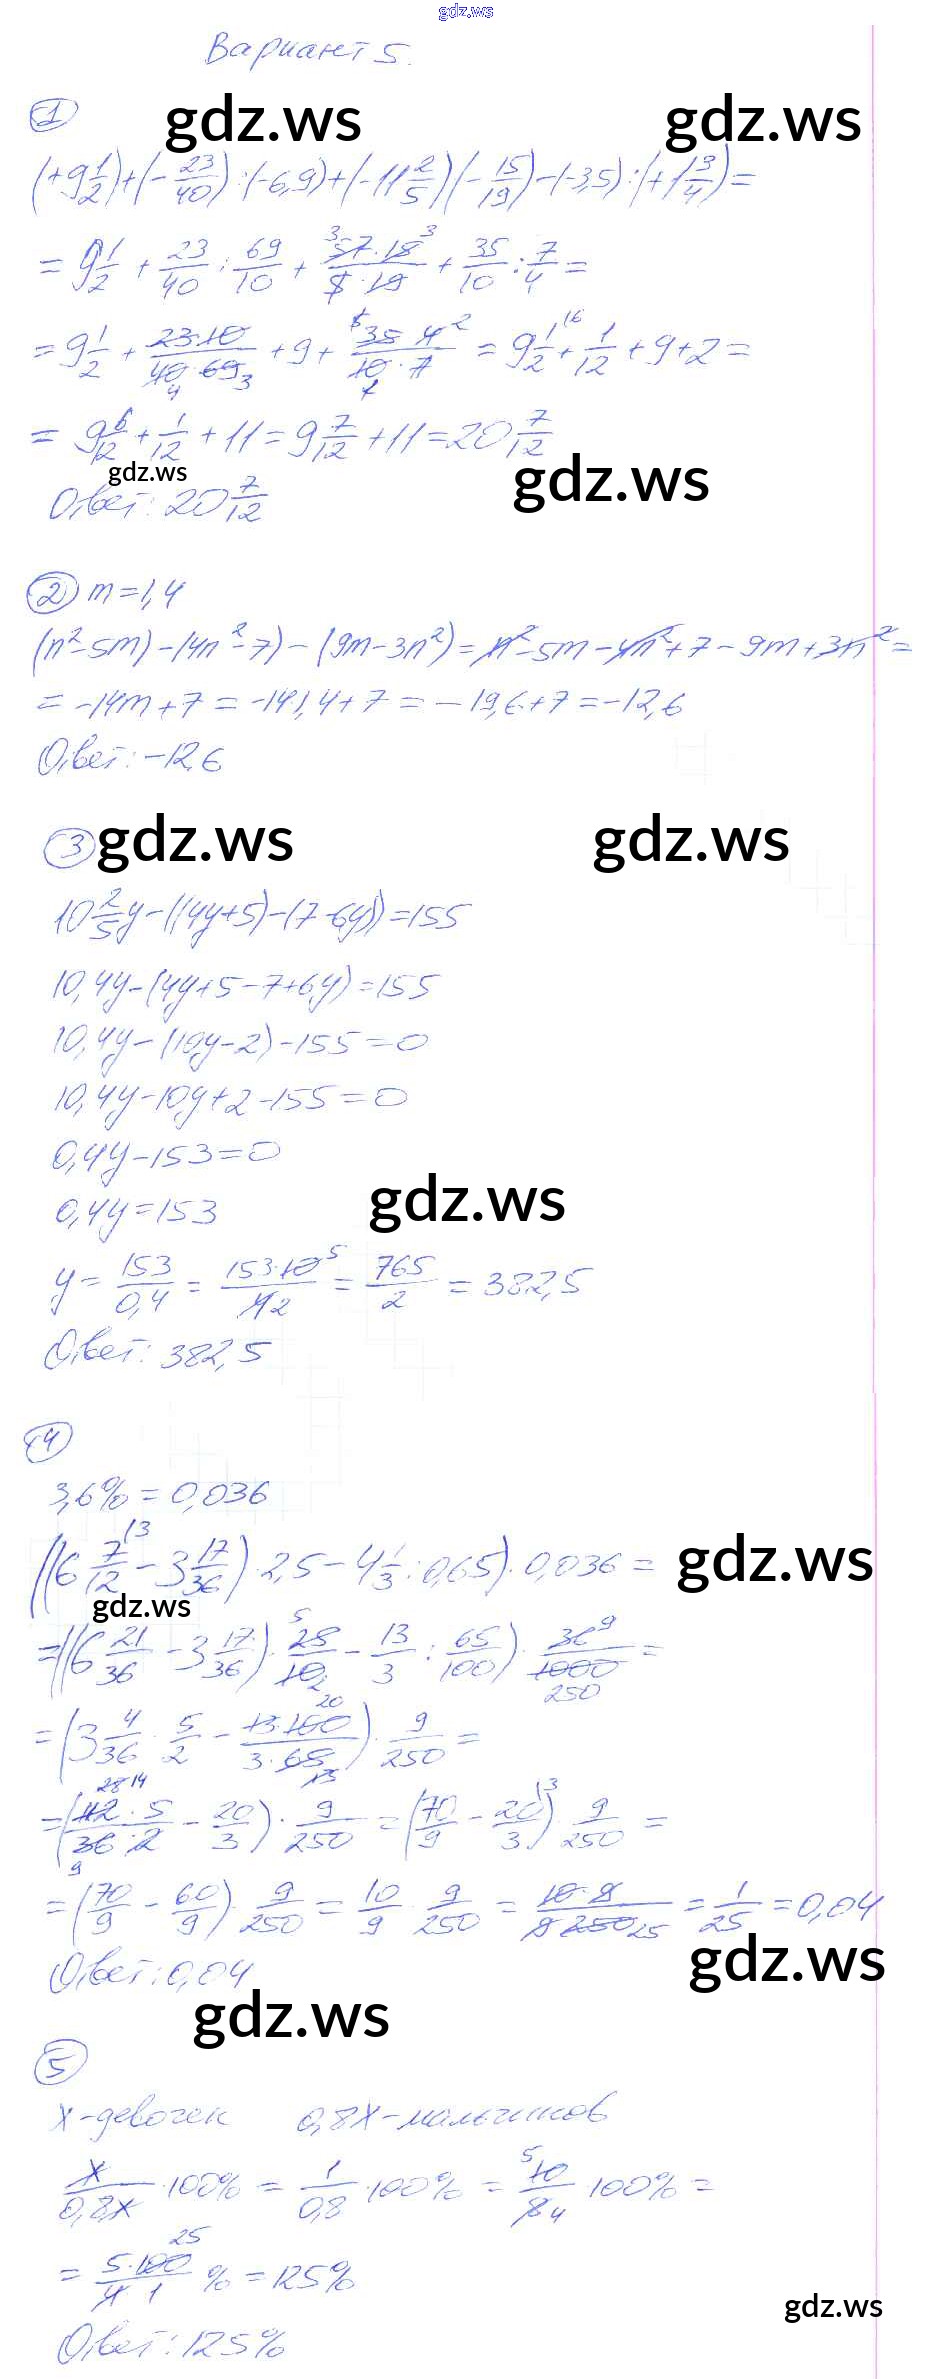 gdz.ws
Вариант 5.
1
gdz.ws gdz.ws
(+9 1/2)+(-23/40):(-6,9)+(-11 2/5)(-15/19)-(-3,5):(+1 3/4)=
= 9 1/2 + 23/40 : 69/10 + 57·15/5·19 + 35/10 : 7/4 =
= 9 1/2 + 23·10/40·69 + 9 + 35·4/10·7 = 9 1/2 + 1/12 + 9 + 2 =
= 9 6/12 + 1/12 + 11 = 9 7/12 + 11 = 20 7/12
gdz.ws gdz.ws
Ответ: 20 7/12
2 m=1,4
(n²-5m)-(4n²-7)-(9m-3n²)=n²-5m-4n²+7-9m+3n²=
= -14m+7 = -14·1,4+7 = -19,6+7 = -12,6
Ответ: -12,6
3 gdz.ws gdz.ws
10 2/5 y-((4y+5)-(7-6y))=155
10,4y-(4y+5-7+6y)=155
10,4y-(10y-2)-155=0
10,4y-10y+2-155=0
0,4y-153=0
gdz.ws
0,4y=153
y= 153/0,4 = 153·10/4 = 765/2 = 382,5
Ответ: 382,5
4
3,6% = 0,036
((6 7/12 - 3 17/36)·2,5 - 4 1/3 : 0,65)·0,036 =
gdz.ws
gdz.ws
=((6 21/36 - 3 17/36)· 25/10 - 13/3 : 65/100)· 36/1000 =
=(3 4/36 · 5/2 - 13·100/3·65)· 9/250 =
=(112·5/36·2 - 20/3)· 9/250 = (70/9 - 20/3)· 9/250 =
=(70/9 - 60/9)· 9/250 = 10/9 · 9/250 = 10·9/9·250 = 1/25 = 0,04
gdz.ws
Ответ: 0,04
gdz.ws
5
x-девочек 0,8x-мальчиков
x/0,8x ·100% = 1/0,8 ·100% = 10/8 ·100% =
= 5·100/4 % = 125%
gdz.ws
Ответ: 125%